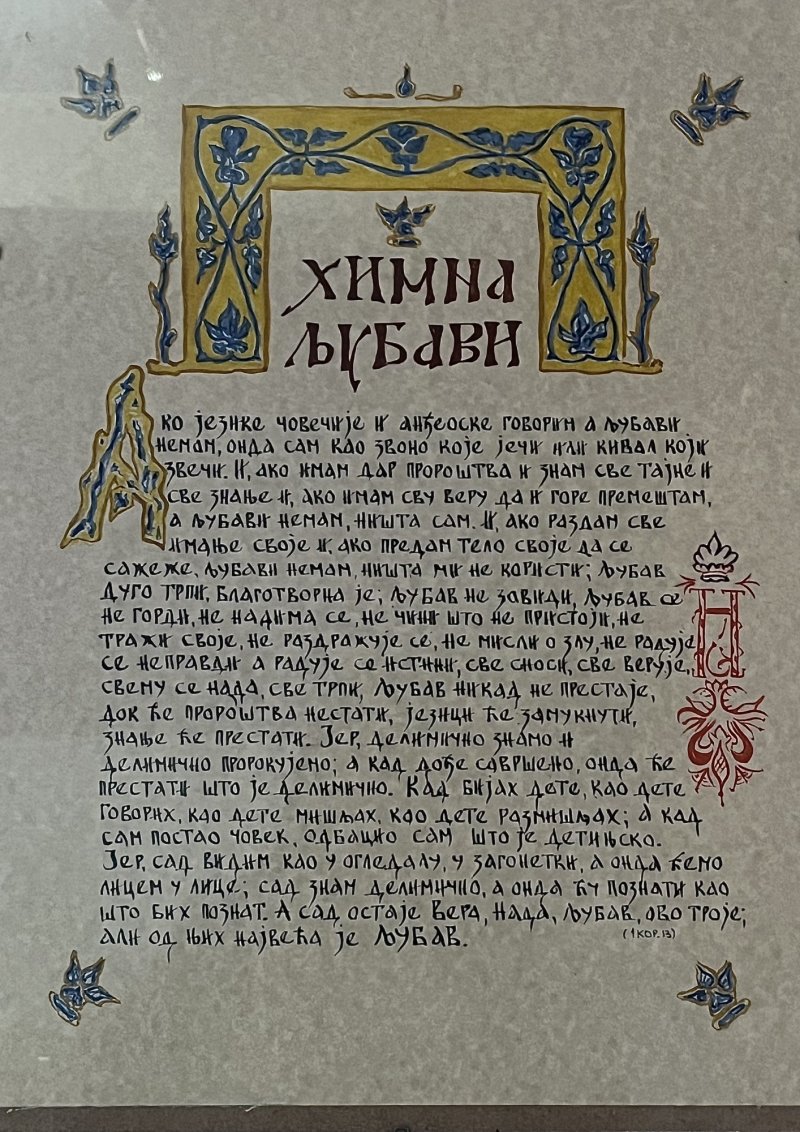 ХИМНА
ЉУБАВИ
АКО ЈЕЗИКЕ ЧОВЕЧИЈЕ И АНЂЕОСКЕ ГОВОРИМ А ЉУБАВИ
НЕМАМ, ОНДА САМ КАО ЗВОНО КОЈЕ ЈЕЧИ ИЛИ КИВАЛ КОЈИ
ЗВЕЧИ. И, АКО ИМАМ ДАР ПРОРОШТВА И ЗНАМ СВЕ ТАЈНЕ И
СВЕ ЗНАЊЕ И, АКО ИМАМ СВУ ВЕРУ ДА И ГОРЕ ПРЕМЕШТАМ,
А ЉУБАВИ НЕМАМ, НИШТА САМ. И, АКО РАЗДАМ СВЕ
ИМАЊЕ СВОЈЕ И, АКО ПРЕДАМ ТЕЛО СВОЈЕ ДА СЕ
САЖЕЖЕ, ЉУБАВИ НЕМАМ, НИШТА МИ НЕ КОРИСТИ; ЉУБАВ
ДУГО ТРПИ, БЛАГОТВОРНА ЈЕ; ЉУБАВ НЕ ЗАВИДИ, ЉУБАВ СЕ
НЕ ГОРДИ, НЕ НАДИМА СЕ, НЕ ЧИНИ ШТО НЕ ПРИСТОЈИ, НЕ
ТРАЖИ СВОЈЕ, НЕ РАЗДРАЖУЈЕ СЕ, НЕ МИСЛИ О ЗЛУ, НЕ РАДУЈЕ
СЕ НЕПРАВДИ А РАДУЈЕ СЕ ИСТИНИ, СВЕ СНОСИ, СВЕ ВЕРУЈЕ,
СВЕМУ СЕ НАДА, СВЕ ТРПИ; ЉУБАВ НИКАД НЕ ПРЕСТАЈЕ,
ДОК ЋЕ ПРОРОШТВА НЕСТАТИ, ЈЕЗИЦИ ЋЕ ЗАМУКНУТИ,
ЗНАЊЕ ЋЕ ПРЕСТАТИ. ЈЕР, ДЕЛИМИЧНО ЗНАМО И
ДЕЛИМИЧНО ПРОРОКУЈЕМО; А КАД ДОЂЕ САВРШЕНО, ОНДА ЋЕ
ПРЕСТАТИ ШТО ЈЕ ДЕЛИМИЧНО. КАД БИЈАХ ДЕТЕ, КАО ДЕТЕ
ГОВОРИХ, КАО ДЕТЕ МИШЉАХ, КАО ДЕТЕ РАЗМИШЉАХ; А КАД
САМ ПОСТАО ЧОВЕК, ОДБАЦИО САМ ШТО ЈЕ ДЕТИЊСКО.
ЈЕР, САД ВИДИМ КАО У ОГЛЕДАЛУ, У ЗАГОНЕТКИ, А ОНДА ЋЕМО
ЛИЦЕМ У ЛИЦЕ; САД ЗНАМ ДЕЛИМИЧНО, А ОНДА ЋУ ПОЗНАТИ КАО
ШТО БИХ ПОЗНАТ. А САД ОСТАЈЕ ВЕРА, НАДА, ЉУБАВ, ОВО ТРОЈЕ;
АЛИ ОД ЊИХ НАЈВЕЋА ЈЕ ЉУБАВ.
(1 КОР. 13)